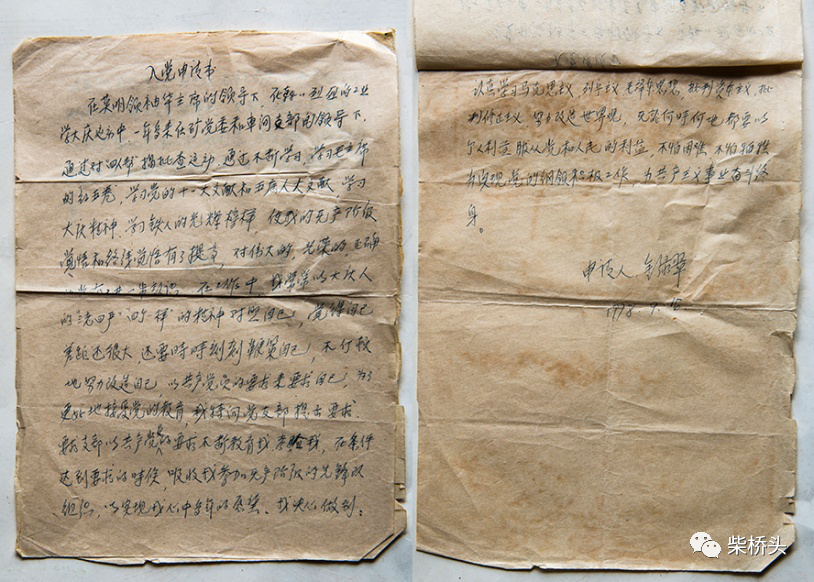 入党申请书
在英明领袖华主席的领导下,在轰轰烈烈的工业
学大庆运动中,一年多来在矿党委和车间支部的领导下,
通过对四人帮揭批查运动,通过不断学习,学习毛主席
的红五卷,学习党的十一大文献和五届人大文献,学习
大庆精神,学习铁人的光辉榜样,使我的无产阶级
觉悟和路线觉悟有了提高,对伟大的、光荣的、正确
在工作中,我常常以大庆人
的“三老四严”“四个一样”的精神对照自己,觉得自己
差距还很大,还要时时刻刻鞭策自己,不
地努力改造自己,以共产党员的要求来要求自己,为了
更好地接受党的教育,我特向党支部提出要求,
要求支部以共产党员的要求不断教育我考验我,在条件
达到要求的时候,吸收我参加无产阶级的先锋队
组织,以实现我心中多年的愿望。我决心做到:
认真学习马克思主义、列宁主义、毛泽东思想,批判资本主义,批
判修正主义,努力改造世界观,无论何时何地都要以
个人利益服从党和人民的利益,不怕困难,不怕牺牲
为实现党的纲领积极工作,为共产主义事业奋斗终
身。
申请人
1978.9.
柴桥头